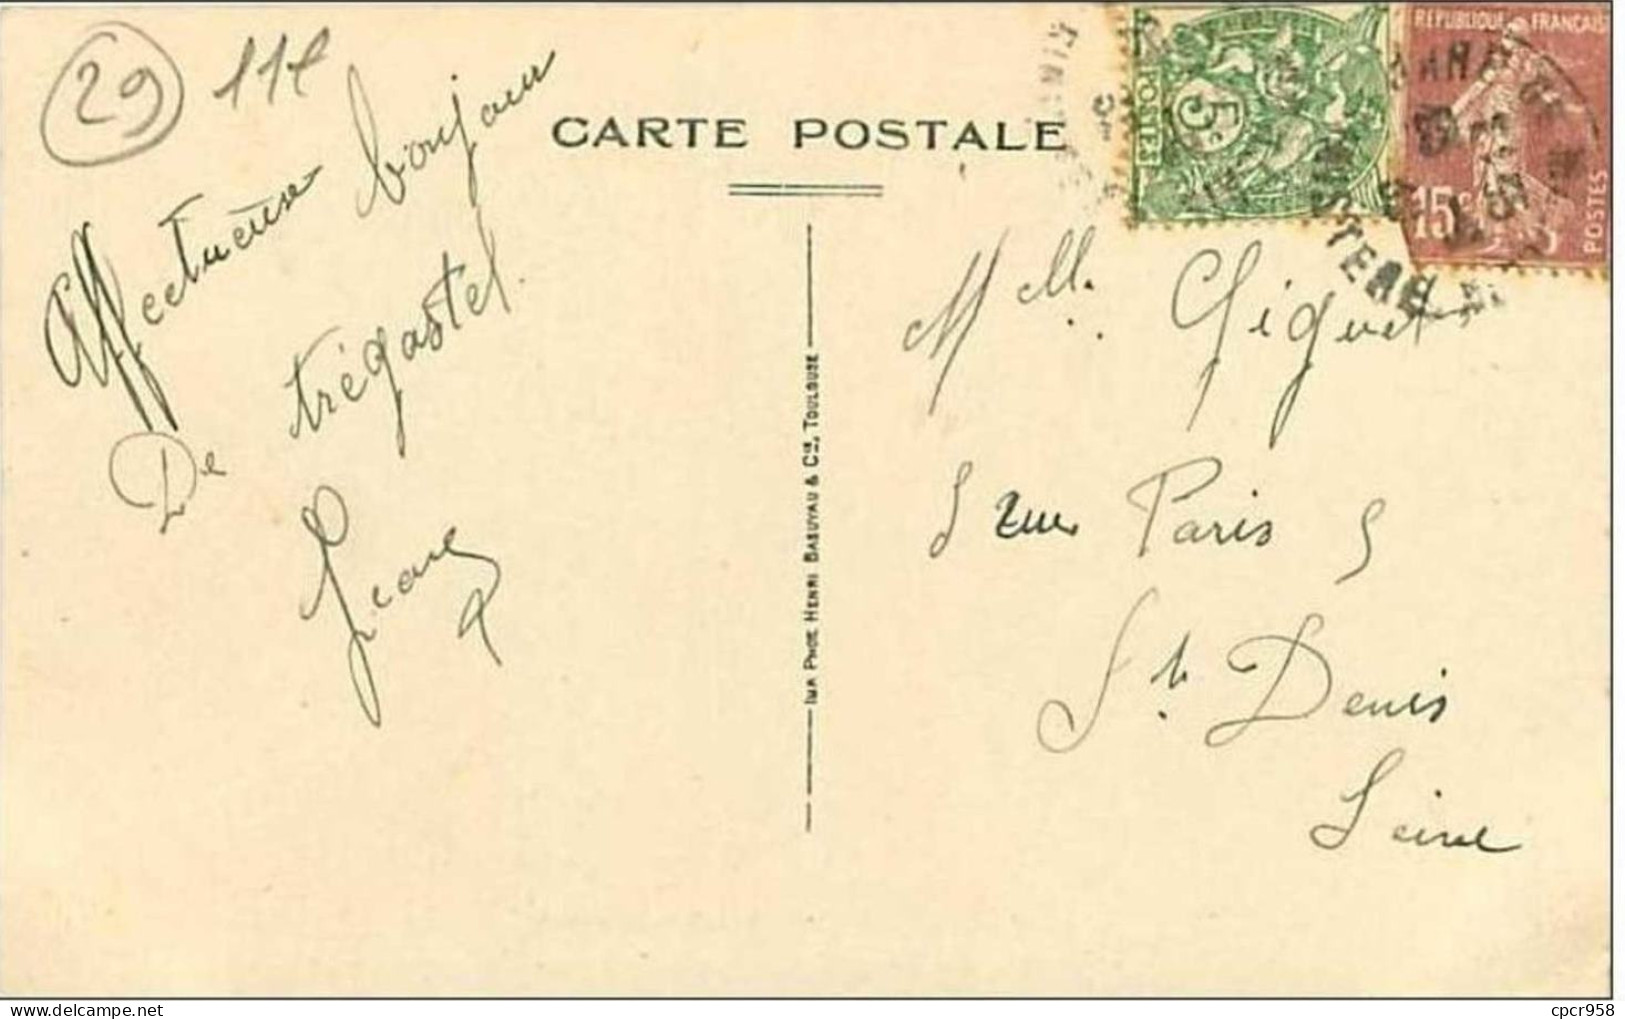 29 11e
CARTE POSTALE
Affectueux bonjour
De trégastel.
POSTES 5c
RÉPUBLIQUE FRANÇAISE
15c POSTES
Melle
5 rue Paris 5
St. Denis
Seine
IMP. PHOT. HENRI BASUYAU & Cie, TOULOUSE
cpcr958